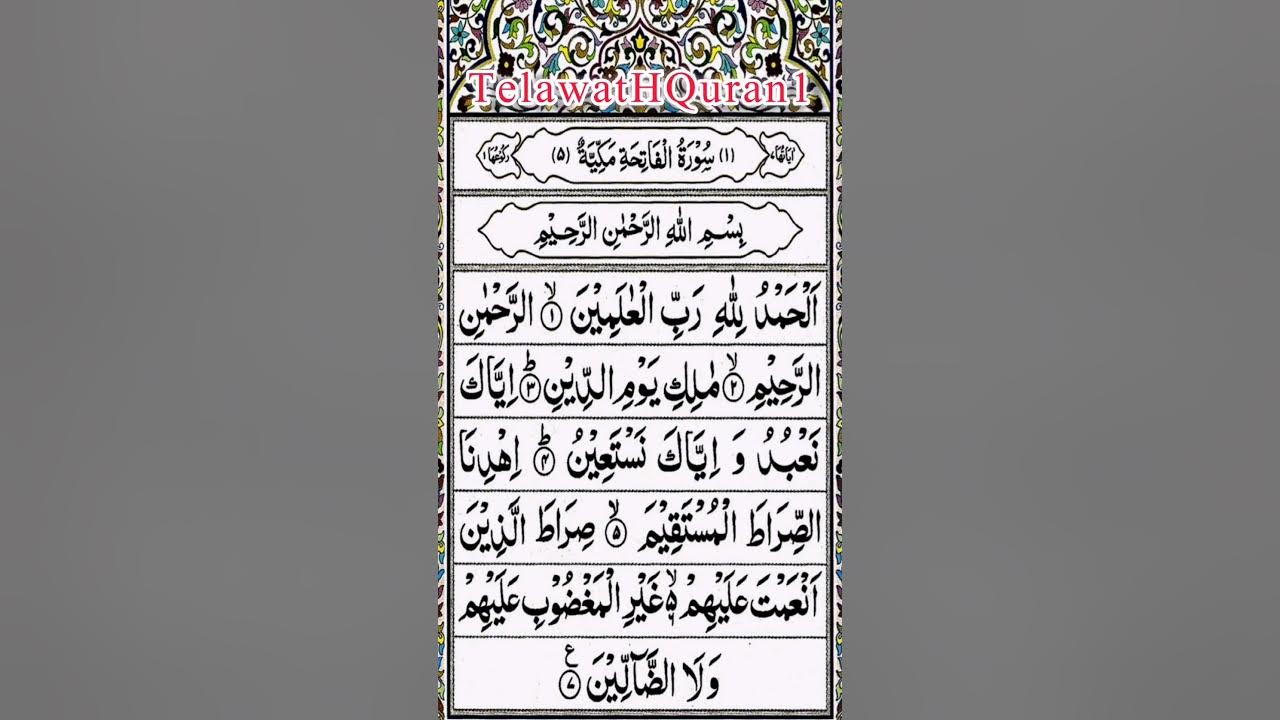 TelawatHQuran1
اٰيَاتُهَا ٧ (١) سُوْرَةُ الْفَاتِحَةِ مَكِّيَّةٌ (۵) رُكُوْعُهَا ١
بِسْمِ اللّٰهِ الرَّحْمٰنِ الرَّحِيْمِ
اَلْحَمْدُ لِلّٰهِ رَبِّ الْعٰلَمِيْنَ ۙ﴿۱﴾ الرَّحْمٰنِ
الرَّحِيْمِ ۙ﴿۲﴾ مٰلِكِ يَوْمِ الدِّيْنِ ؕ﴿۳﴾ اِيَّاكَ
نَعْبُدُ وَ اِيَّاكَ نَسْتَعِيْنُ ؕ﴿۴﴾ اِهْدِنَا
الصِّرَاطَ الْمُسْتَقِيْمَ ۙ﴿۵﴾ صِرَاطَ الَّذِيْنَ
اَنْعَمْتَ عَلَيْهِمْ ۙ۬ۦ غَيْرِ الْمَغْضُوْبِ عَلَيْهِمْ
وَلَا الضَّآلِّيْنَ ﴿۷﴾ ع